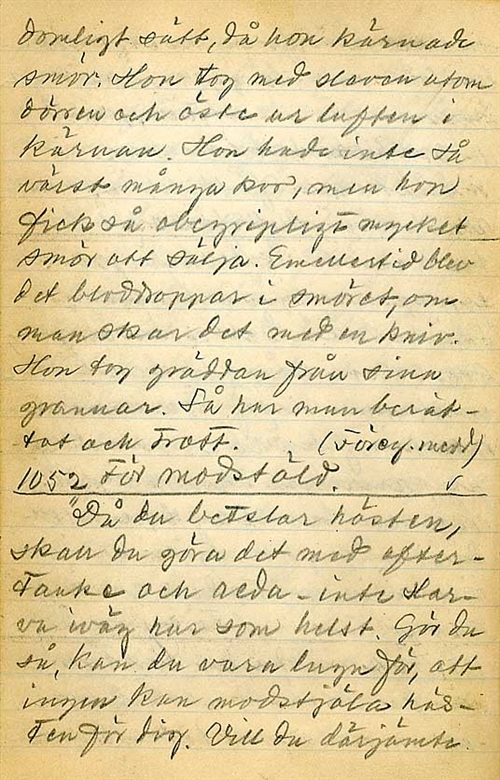 domligt sätt, då hon kärnade
smör. Hon tog med slevan utom
dörren och öste ur luften i
kärnan. Hon hade inte så
värst många kor, men hon
fick så obegripligt mycket
smör att sälja. Emellertid blev
det bloddroppar i smöret, om
man skar det med en kniv.
Hon tog gräddan från sina
grannar. Så har man berät-
tat och trott. (Föreg. medd)
1052 För modstöld.
"Då du betslar hästen,
skall du göra det med efter-
tanke och reda - inte slar-
va iväg hur som helst. Gör du
så, kan du vara lugn för, att
ingen kan modstjäla häs-
ten för dig. Vill du därjämte